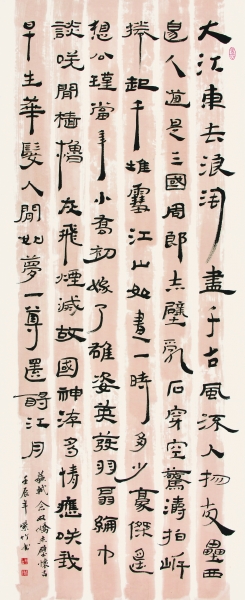 大江東去浪淘盡千古風流人物故壘西
邊人道是三國周郎赤壁亂石穿空驚濤拍岍
捲起千堆雪江山如畫一時多少豪傑遥
想公瑾當年小喬初嫁了雄姿英發羽扇綸巾
談咲間檣櫓灰飛煙滅故國神游多情應咲我
早生華髮人間如夢一尊還酹江月
蘇軾念奴嬌赤壁懷古
壬辰年竹書